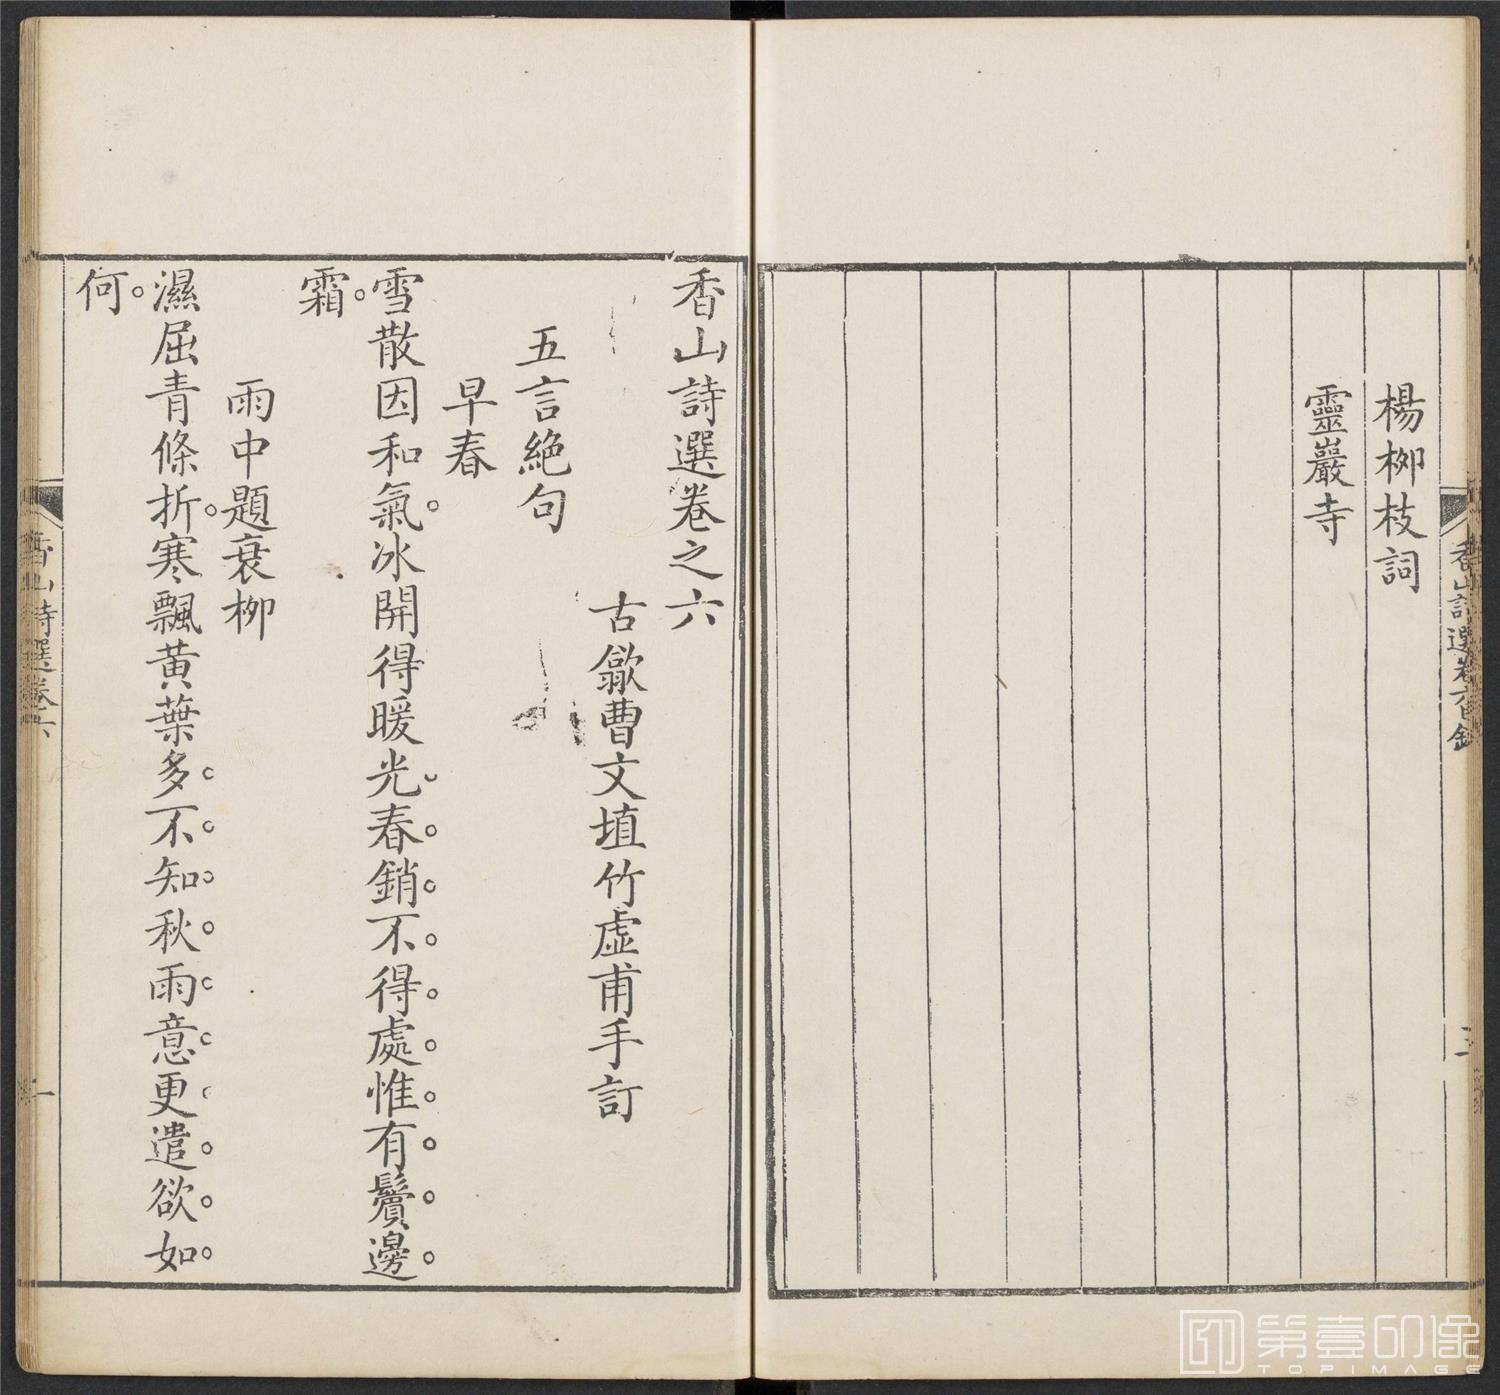 楊柳枝詞
靈巖寺
香山詩選卷六目錄
三
香山詩選卷之六
古歙曹文埴竹虛甫手訂
五言絶句
早春
雪散因和氣。冰開得暖光。春銷不得處惟有鬢邊
霜。
雨中題衰柳
濕屈青條折。寒飄黃葉多。不知秋雨意更遣欲如
何。
香山詩選卷六
一
第壹印像
TOPIMAGE